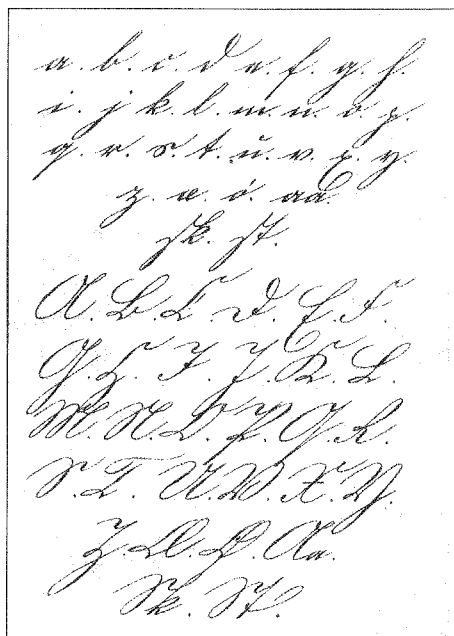 a. b. c. d e. f. g. h.
i. j k. l. m. n. o p.
q. r. s. t. u. v. x. y.
z. æ. ø. aa.
sk. st.
A. B. C. D. E. F.
G. H. I. J. K. L.
M. N. O. P. Q. R.
S. T. U. V. X. Y.
Z. Æ. Ø. Aa.
Sk. St.